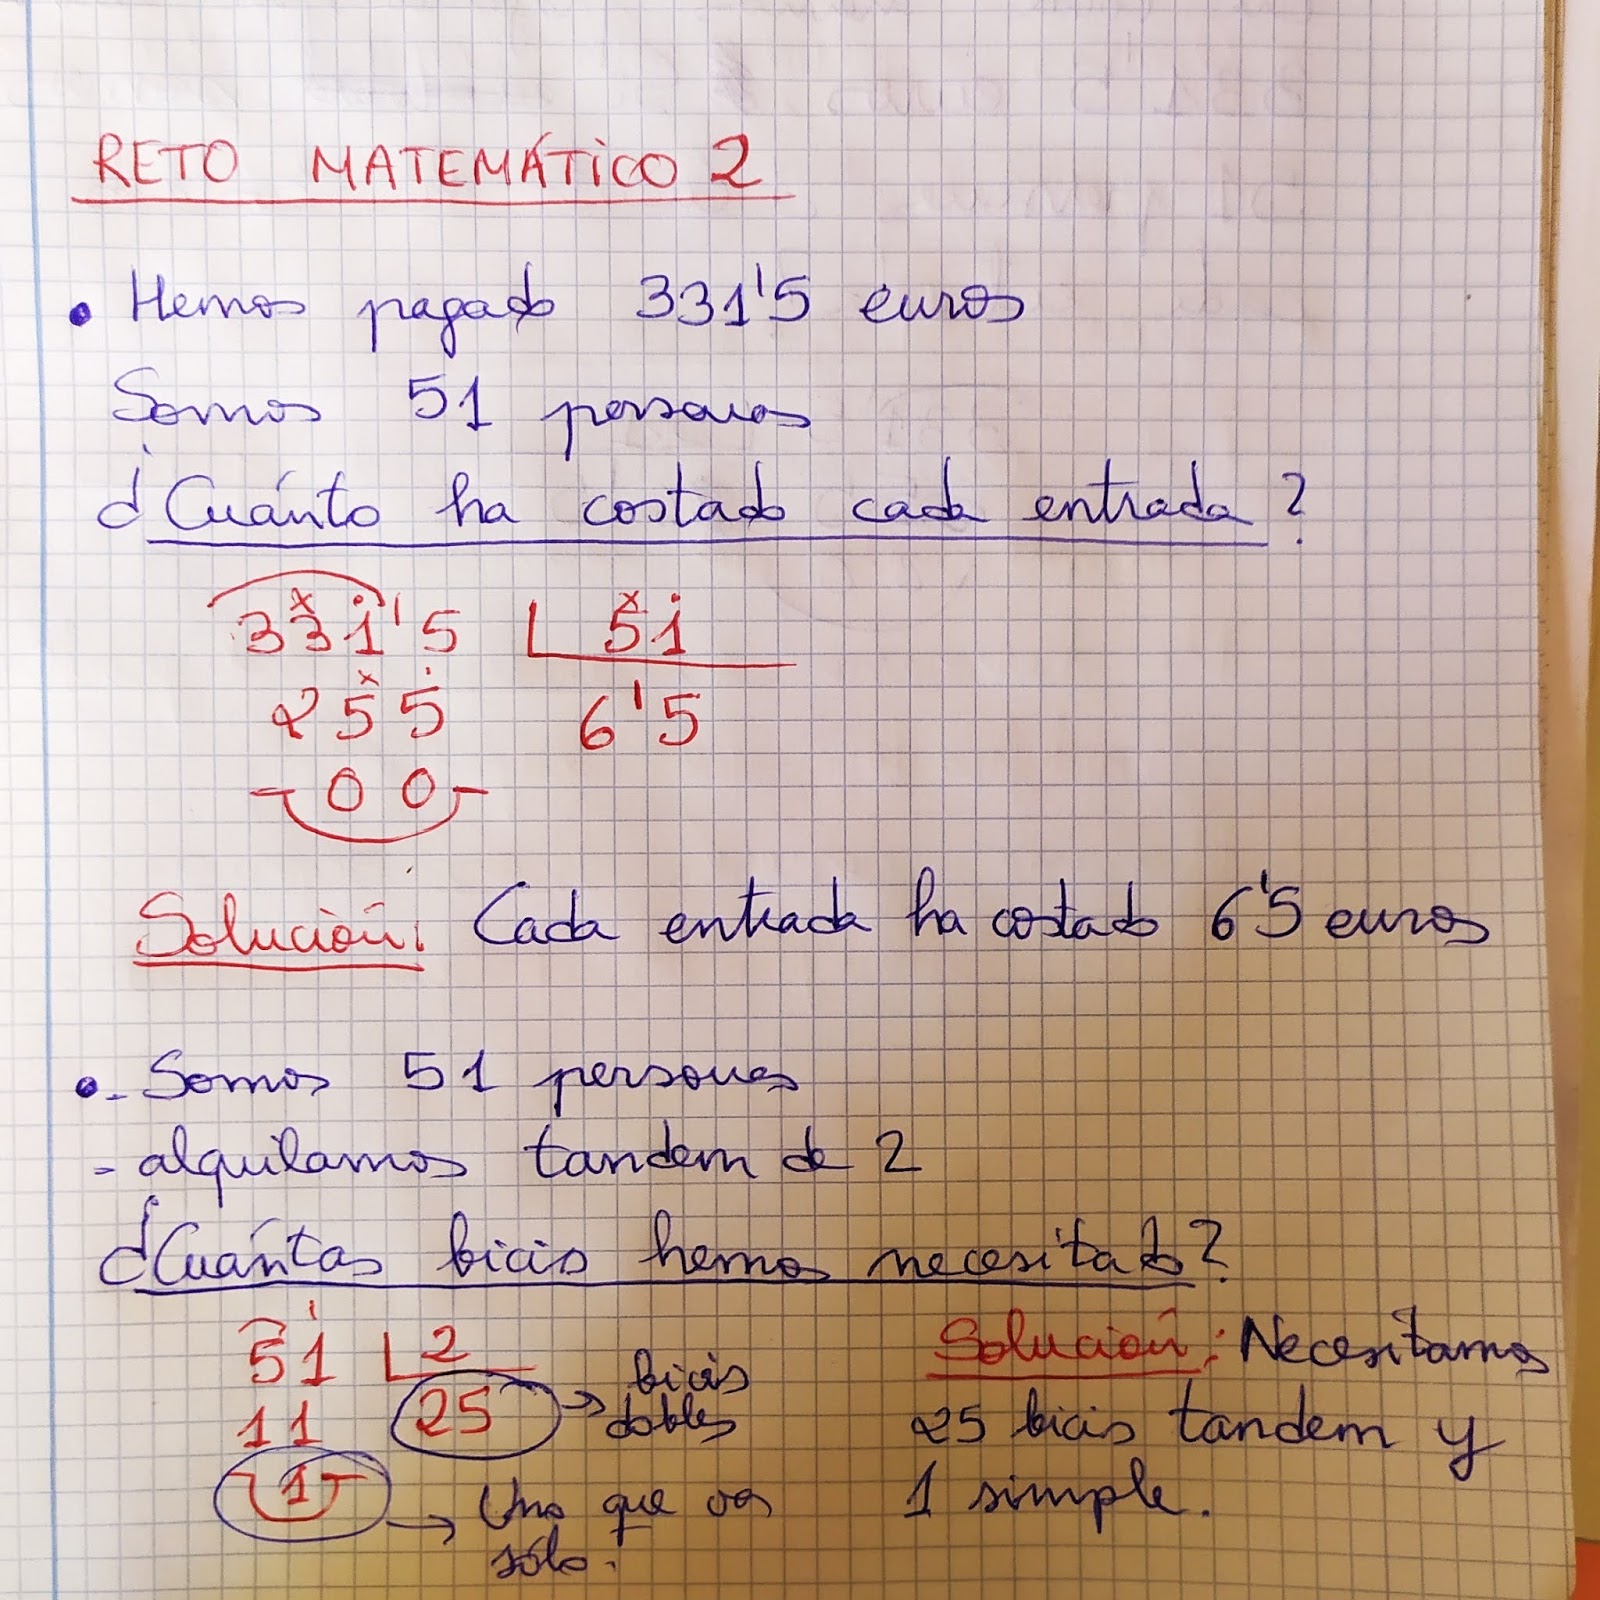 RETO MATEMÁTICO 2
• Hemos pagado 331'5 euros
Somos 51 personas
¿Cuánto ha costado cada entrada?
331'5 51
255 6'5
00
Solución: Cada entrada ha costado 6'5 euros
• - Somos 51 personas
- alquilamos tandem de 2
¿Cuántas bicis hemos necesitado?
51 2
11 25 → bicis dobles
1 → Uno que va sólo.
Solución: Necesitamos
25 bicis tandem y
1 simple.